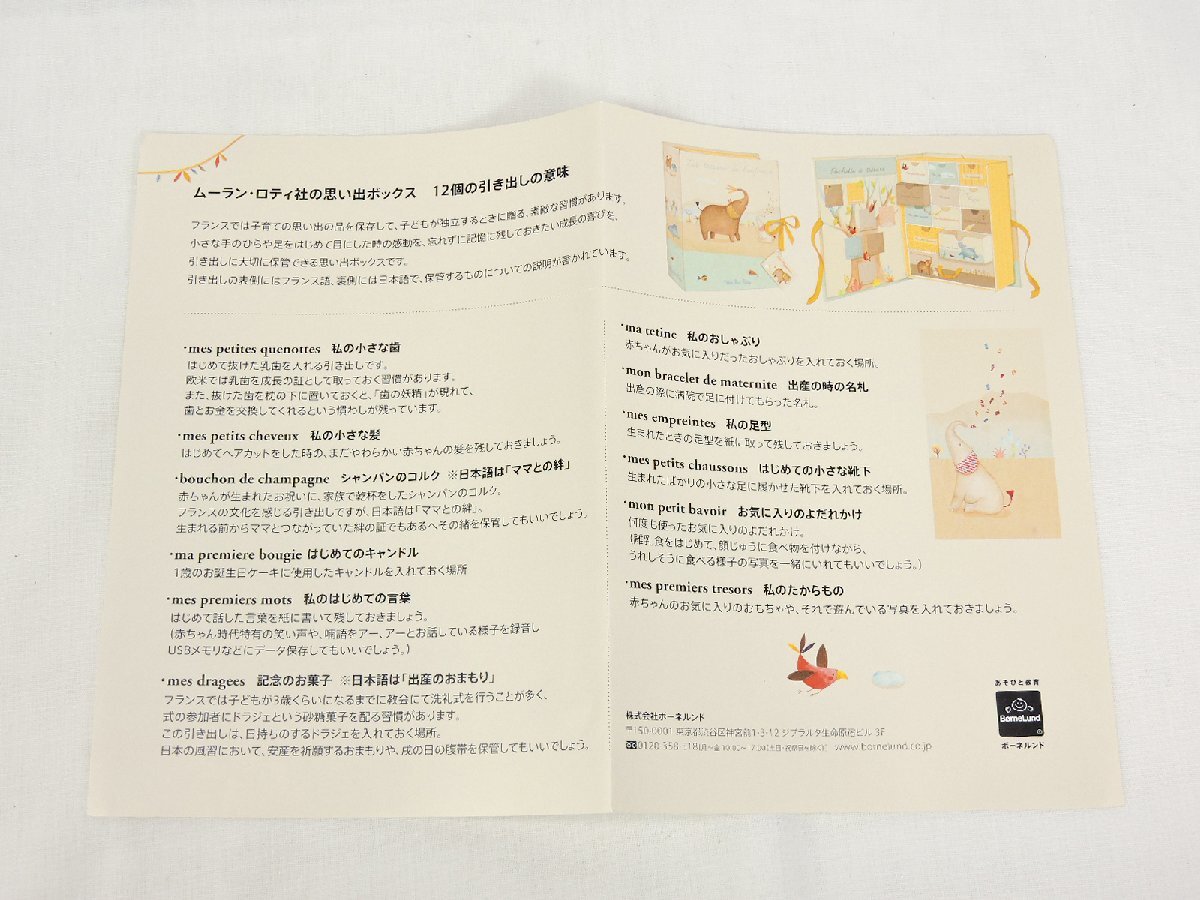 ムーラン・ロティ社の思い出ボックス　12個の引き出しの意味
フランスでは子育ての思い出の品を保存して、子どもが独立するときに贈る、素敵な習慣があります。
小さな手のひらや足をはじめて目にした時の感動を、忘れずに記憶に残しておきたい成長の喜びを、
引き出しに大切に保管できる思い出ボックスです。
引き出しの表側にはフランス語、裏側には日本語で、保管するものについての説明が書かれています。
・mes petites quenottes　私の小さな歯
はじめて抜けた乳歯を入れる引き出しです。
欧米では乳歯を成長の証として取っておく習慣があります。
また、抜けた歯を枕の下に置いておくと、「歯の妖精」が現れて、
歯とお金を交換してくれるという慣わしが残っています。
・mes petits cheveux　私の小さな髪
はじめてヘアカットをした時の、まだやわらかい赤ちゃんの髪を残しておきましょう。
・bouchon de champagne　シャンパンのコルク　※日本語は「ママとの絆」
赤ちゃんが生まれたお祝いに、家族で乾杯をしたシャンパンのコルク。
フランスの文化を感じる引き出しですが、日本語は「ママとの絆」。
生まれる前からママとつながっていた絆の証でもあるへその緒を保管してもいいでしょう。
・ma premiere bougie はじめてのキャンドル
1歳のお誕生日ケーキに使用したキャンドルを入れておく場所
・mes premiers mots　私のはじめての言葉
はじめて話した言葉を紙に書いて残しておきましょう。
（赤ちゃん時代特有の笑い声や、喃語をアー、アーとお話している様子を録音し
USBメモリなどにデータ保存してもいいでしょう。）
・mes dragees　記念のお菓子　※日本語は「出産のおまもり」
フランスでは子どもが3歳くらいになるまでに教会にて洗礼式を行うことが多く、
式の参加者にドラジェという砂糖菓子を配る習慣があります。
この引き出しは、日持ちのするドラジェを入れておく場所。
日本の風習において、安産を祈願するおまもりや、戌の日の腹帯を保管してもいいでしょう。
・ma tetine　私のおしゃぶり
赤ちゃんがお気に入りだったおしゃぶりを入れておく場所。
・mon bracelet de maternite　出産の時の名札
出産の際に病院で足に付けてもらった名札。
・mes empreintes　私の足型
生まれたときの足型を紙に取って残しておきましょう。
・mes petits chaussons　はじめての小さな靴下
生まれたばかりの小さな足に履かせた靴下を入れておく場所。
・mon petit bavoir　お気に入りのよだれかけ
何度も使ったお気に入りのよだれかけ。
（離乳食をはじめて、顔じゅうに食べ物を付けながら、
うれしそうに食べる様子の写真を一緒にいれてもいいでしょう。）
・mes premiers tresors　私のたからもの
赤ちゃんのお気に入りのおもちゃや、それで遊んでいる写真を入れておきましょう。
株式会社ボーネルンド
〒150-0001 東京都渋谷区神宮前1-3-12 ジブラルタ生命原宿ビル 3F
www.bornelund.co.jp
あそびと教育
BorneLund
ボーネルンド